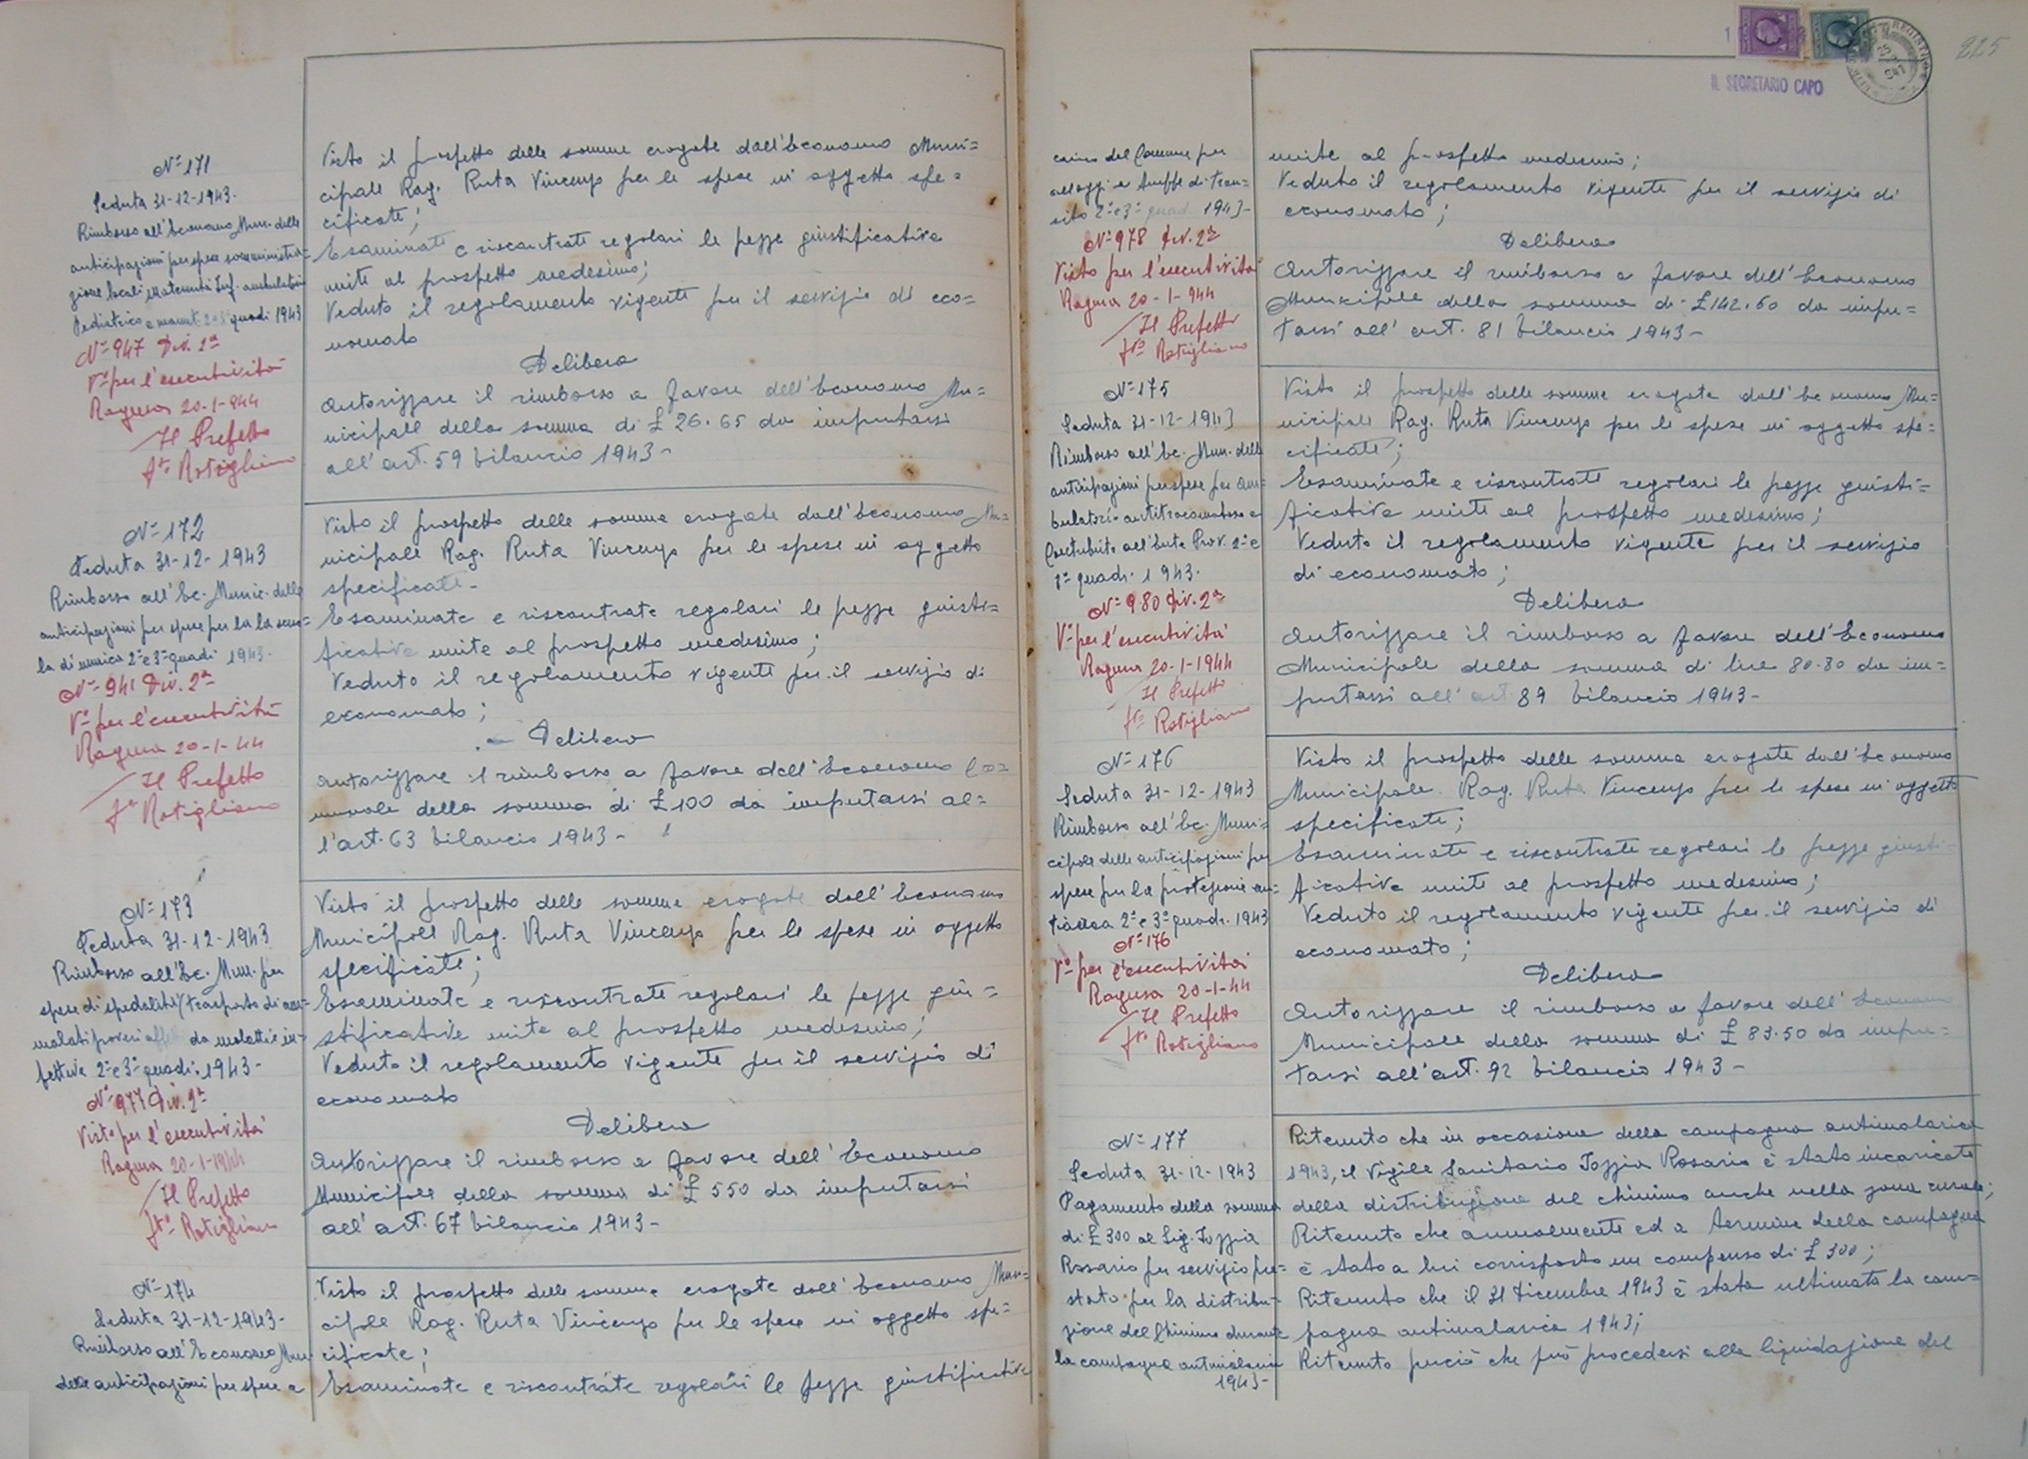 N° 171
Seduta 31-12-1943.
Rimborso all'Economo Mun. delle
anticipazioni per spese somministra=
zione locali Maternità Inf. ambulatori
Pediatrico e 2° 3° quadr. 1943
N° 947 Div. 2ª
V° per l'esecutività
Ragusa 20-1-944
Il Prefetto
fto Rotigliano
Visto il prospetto delle somme erogate dall'Economo Muni=
cipale Rag. Ruta Vincenzo per le spese in oggetto spe=
cificate;
Esaminate e riscontrate regolari le pezze giustificative
unite al prospetto medesimo;
Veduto il regolamento vigente per il servizio di eco=
nomato
Delibera
Autorizzare il rimborso a favore dell'Economo Mu=
nicipale della somma di £ 26.65 da imputarsi
all'art. 59 bilancio 1943-
N° 172
Seduta 31-12-1943
Rimborso all'Ec. Munic. delle
anticipazioni per spese per la la scuo=
la di musica 2° e 3° quadr. 1943-
N° 941 Div. 2ª
V° per l'esecutività
Ragusa 20-1-44
Il Prefetto
fto Rotigliano
Visto il prospetto delle somme erogate dall'Economo Mu=
nicipale Rag. Ruta Vincenzo per le spese in oggetto
specificate-
Esaminate e riscontrate regolari le pezze giusti=
ficative unite al prospetto medesimo;
Veduto il regolamento vigente per il servizio di
economato;
Delibera
Autorizzare il rimborso a favore dell'Economo Co=
munale della somma di £ 100 da imputarsi al=
l'art. 63 bilancio 1943-
N° 173
Seduta 31-12-1943
Rimborso all'Ec. Mun. per
spese di spedalità/trasporto di am=
malati poveri affetti da malattie in=
fettive 2° e 3° quadr. 1943-
N° 977 Div. 2ª
Visto per l'esecutività
Ragusa 20-1-1944
Il Prefetto
fto Rotigliano
Visto il prospetto delle somme erogate dall'Economo
Municipale Rag. Ruta Vincenzo per le spese in oggetto
specificate;
Esaminate e riscontrate regolari le pezze giu=
stificative unite al prospetto medesimo;
Veduto il regolamento vigente per il servizio di
economato
Delibera
Autorizzare il rimborso a favore dell'Economo
Municipale della somma di £ 550 da imputarsi
all'art. 67 bilancio 1943-
N° 174
Seduta 31-12-1943-
Rimborso all'Economo Mun.
delle anticipazioni per spese a
Visto il prospetto delle somme erogate dall'Economo Muni=
cipale Rag. Ruta Vincenzo per le spese in oggetto spe=
cificate;
Esaminate e riscontrate regolari le pezze giustificative
225
IL SEGRETARIO CAPO
carico del Comune per
alloggi e truppe di tran=
sito 2° e 3° quadr. 1943-
N° 978 Div. 2ª
Visto per l'esecutività
Ragusa 20-1-944
Il Prefetto
fto Rotigliano
unite al prospetto medesimo;
Veduto il regolamento vigente per il servizio di
economato;
Delibera
Autorizzare il rimborso a favore dell'Economo
Municipale della somma di £ 142.60 da impu=
tarsi all'art. 81 bilancio 1943-
N° 175
Seduta 31-12-1943
Rimborso all'Ec. Mun. delle
anticipazioni per spese per am=
bulatorio antitracomatoso e
Contributo all'Ente Prov. 2° e
3° quadr. 1943.
N° 980 Div. 2ª
V° per l'esecutività
Ragusa 20-1-1944
Il Prefetto
fto Rotigliano
Visto il prospetto delle somme erogate dall'Economo Mu=
nicipale Rag. Ruta Vincenzo per le spese in oggetto spe=
cificate;
Esaminate e riscontrate regolari le pezze giusti=
ficative unite al prospetto medesimo;
Veduto il regolamento vigente per il servizio
di economato;
Delibera
Autorizzare il rimborso a favore dell'Economo
Municipale della somma di lire 80.80 da im=
putarsi all'art 89 bilancio 1943-
N° 176
Seduta 31-12-1943
Rimborso all'Ec. Muni=
cipale delle anticipazioni per
spese per la protezione an=
tiaerea 2° e 3° quadr. 1943
N° 176
V° per l'esecutività
Ragusa 20-1-44
Il Prefetto
fto Rotigliano
Visto il prospetto delle somme erogate dall'Economo
Municipale Rag. Ruta Vincenzo per le spese in oggetto
specificate;
Esaminate e riscontrate regolari le pezze giusti=
ficative unite al prospetto medesimo;
Veduto il regolamento vigente per il servizio di
economato;
Delibera
Autorizzare il rimborso a favore dell'Economo
Municipale della somma di £ 83.50 da impu=
tarsi all'art. 92 bilancio 1943-
N° 177
Seduta 31-12-1943
Pagamento della somma
di £ 300 al Sig. Iozzia
Rosario per servizio pre=
stato per la distribu=
zione del Chinino durante
la campagna antimalarica
1943-
Ritenuto che in occasione della campagna antimalarica
1943, il Vigile Sanitario Iozzia Rosario è stato incaricato
della distribuzione del chinino anche nella zona rurale;
Ritenuto che annualmente ed a termine della campagna
è stato a lui corrisposto un compenso di £ 300;
Ritenuto che il 31 Dicembre 1943 è stata ultimata la cam=
pagna antimalarica 1943;
Ritenuto perciò che può procedersi alla liquidazione del